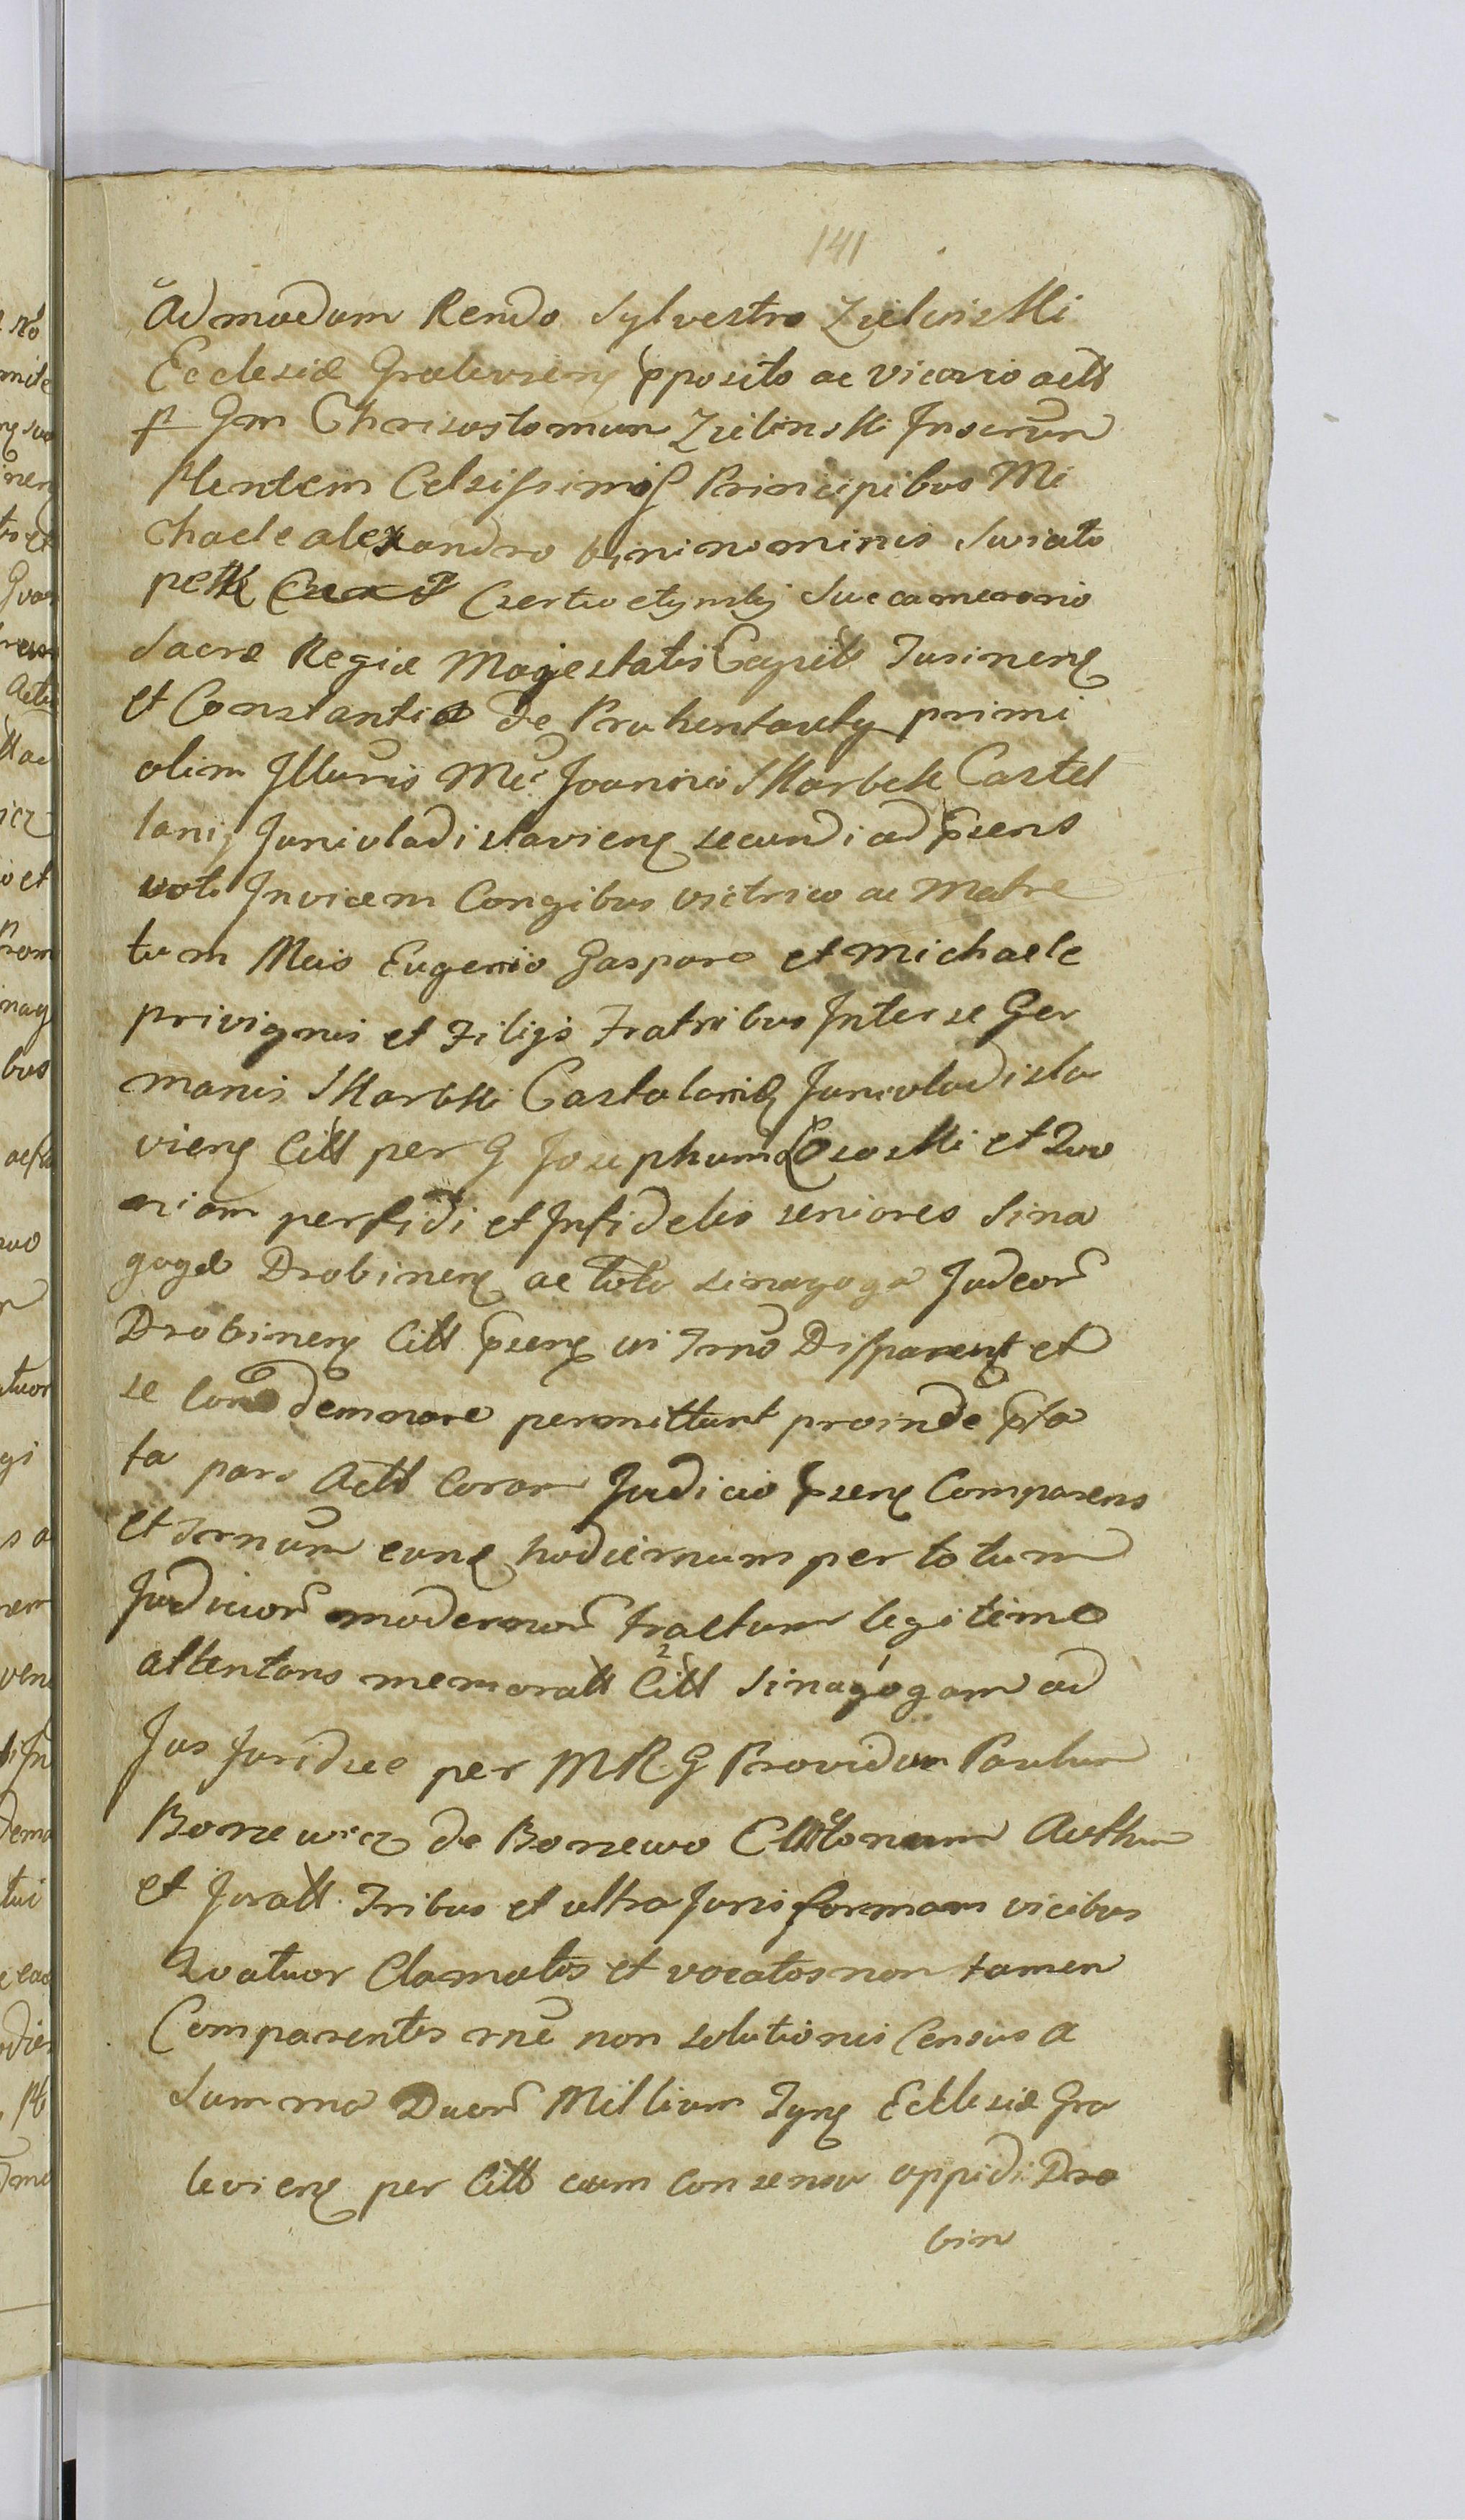 141
Admodum Rendo Sylvestro Zielinski
Ecclesiæ Gralevieñ pposito ac Vicario actt
p Gm Chrisostomum Zielinski Inserün
Plentem Celsissimis Principibus Mi
chaele alexandro bininominis Swiato
pełk Czertwetynsky Succamerario
Sacræ Regiæ Majestatis Capitt Jusineñ
et Constantia de Pruhentauty primi
olim Illuris Mci Joannis Skarbek Castel
lani Juniuladislavieñ secundi ad psens
voti Invicem Congibus Victrico ac Matre
tum Meis Eugenio Gasparo et Michaele
privignis et Filijs Fratribus Inter se Ger
manis Skarbki Castelanid Juniuladisla
vieñ Citt per G Josephum Lososki et Quo
niam perfidi et Infideles seniores Sina
gogæ Drobineñ ac tota sinagoga Judeor
Drobineñ Citt pseñ in Trno Disparent et
se Condemnare permittunt proinde pta
ta pars Actt Coram Judicio pseñ Comparens
et Trnum eunq hodiernum per totum
Judicior modernor tractum legitime
attentans memoratt Citt Sinagogam ad
Jus Juridice per MRG Providum Paulum
Borzewicz de Borzewo Cllttonum Authen
et Juratt Tribus et ultra Juris formam vicibus
Quatuor Clamatos et vocatos non tamen
Comparentes rne non solutionis Census a
Summa Duor Millium Tyñ Ecclesiæ Gra
levieñ per Citt cum Consensu oppidi Dro
bin